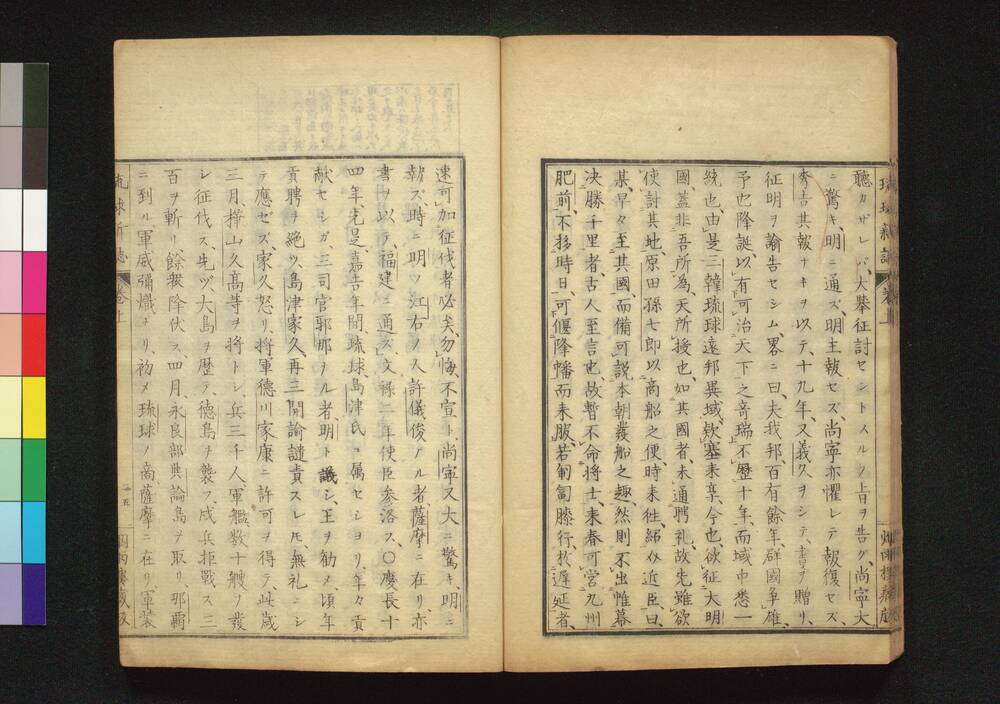 聽カザレバ、大擧征討セントスルノ旨ヲ告グ、尚寧大
ニ驚キ、明ニ通ズ、明主報セズ、尚寧亦懼レテ報復セズ、
秀吉其報ナキヲ以テ、十九年、又義久ヲシテ、書ヲ贈リ、
征明ヲ諭告セシム、畧ニ曰、夫我邦百有餘年、群國爭雄、
予也降誕、以有可治天下之奇瑞、不歷十年、而域中悉一
統也、由是三韓琉球遠邦異域、欵塞来享、今也欲征大明
國、蓋非吾所為、天所授也、如其國者、未通聘礼、故先雖欲
使討其地、原田孫七郎以商船之便、時来往、紹介近臣曰、
某早々至其國、而備可説本朝發船之趣、然則不出惟幕
決勝千里者、古人至言也、故暫不命将士、来春可営九州
肥前、不移時日、可偃降幡而来服、若匍匐膝行於遅延者、
速可加征伐者必矣、勿悔、不宣ト、尚寧又大ニ驚キ明ニ
報ズ、時ニ明ノ江右ノ人許儀俊ナル者薩摩ニ在リ、亦
書ヲ以テ、福建ニ通ズ、文禄二年使臣参洛ス、〇慶長十
四年、先是、嘉吉年間、琉球、島津氏ニ属セシヨリ、年々貢
献セシガ、三司官郭那ナル者、明ト議シ、王ヲ勧メ、頃年
貢聘ヲ絶ツ、島津家久、再三開諭譴責スレ𪜈無礼ニシ
テ應ゼズ、家久怒リ、将軍徳川家康ニ許可ヲ得テ、此歳
三月、樺山久高等ヲ将トシ、兵三千人、軍艦数十艘ヲ發
シ征伐ス、先ヅ大島ヲ歴テ、徳島ヲ襲フ、戍兵拒戰ス、三
百ヲ斬リ、餘衆降伏ス、四月、永良部輿論島ヲ取リ、那覇
ニ到ル、軍威彌熾ナリ、初メ琉球ノ商、薩摩ニ在リ、軍装
琉球新誌
巻上